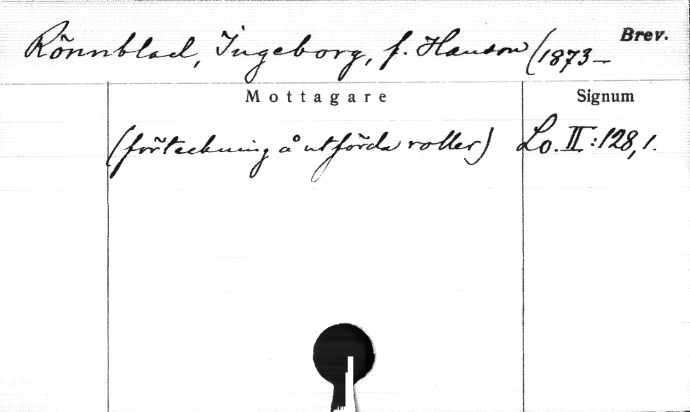 Rönnblad, Ingeborg, f. Hanson (1873–
Brev.
Mottagare
Signum
(förteckning å utförda roller)
Lo. II:128,1.